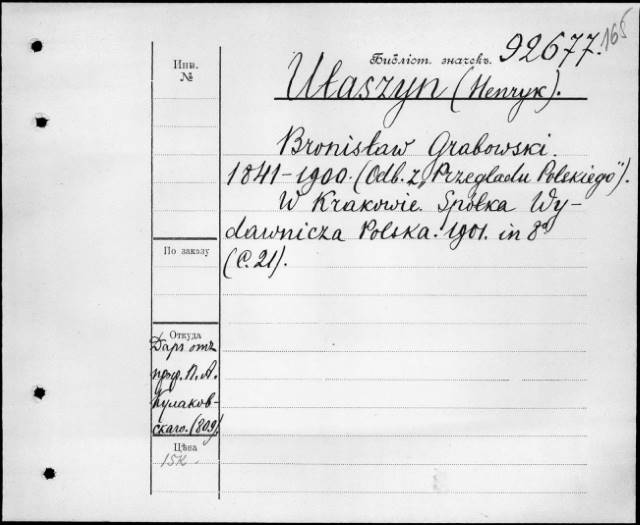 165
Библіот. значекъ. 92677.
Инв.
№
Ułaszyn (Henryk).
Bronisław Grabowski.
1841–1900. (Odb. z „Przeglądu Polskiego").
W Krakowie. Spółka Wy-
dawnicza Polska. 1901. in 8°
(С. 21).
По заказу
Откуда
Даръ отъ
проф. П. А.
Кулаков-
скаго. (809).
Цѣна
15к.